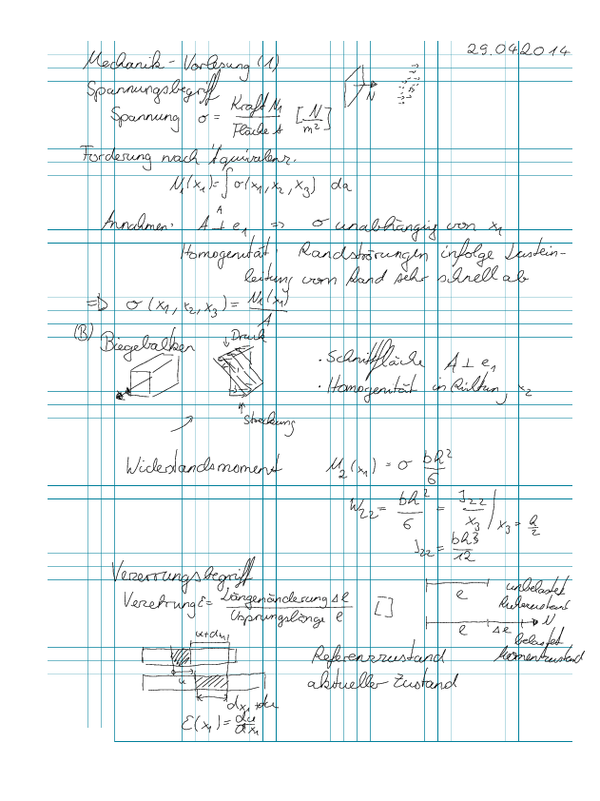 29.04.2014
Mechanik - Vorlesung (1)
Spannungsbegriff
N
Spannung σ = Kraft N₁ / Fläche A [N/m²]
Forderung nach Äquivalenz.
N₁(x₁) = ∫_A σ(x₁, x₂, x₃) da
Annahmen: A ⊥ e₁ => σ unabhängig von x₁
Homogenität: Randstörungen infolge Lastein-
leitung vom Rand sehr schnell ab
=> σ(x₁, x₂, x₃) = N₁(x₁) / A
(B) Biegebalken
Druck
· Schnittfläche A ⊥ e₁
· Homogenität in Richtung x₂
Streckung
Widerstandsmoment M₂(x₁) = σ bh²/6
W₂₂ = bh²/6 = J₂₂/x₃ | x₃ = h/2
J₂₂ = bh3/12
Verzerrungsbegriff
Verzerrung ε = Längenänderung Δl / Ursprungslänge l []
l unbelastet
Ruhezustand
l Δl N
belastet
Momentzustand
u+du
Referenzzustand
u
aktueller Zustand
dx₁ + du
ε(x₁) = du/dx₁